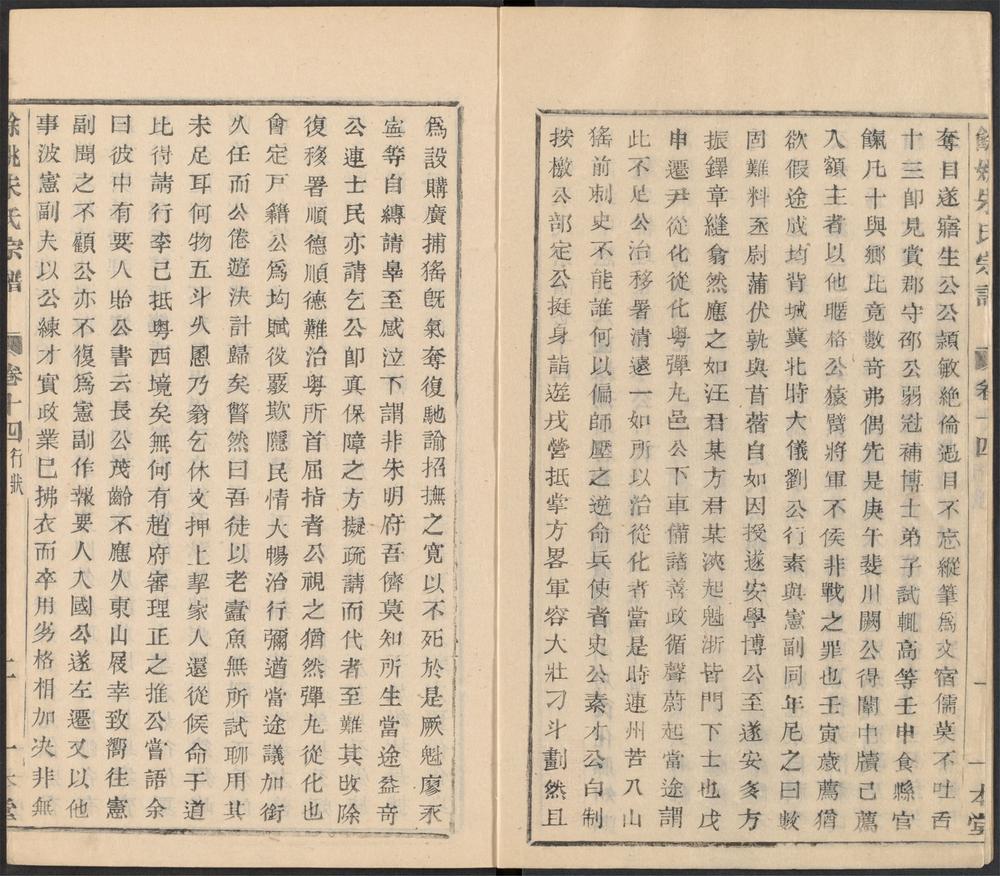 餘姚朱氏宗譜 卷十四 一 一本堂
奪目遂寤生公公穎敏絶倫過目不忘縱筆爲文宿儒莫不吐舌
十三卽見賞郡守邵公弱冠補博士弟子試輒高等壬申食縣官
餼凡十與鄉比竟數奇弗偶先是庚午斐川闕公得闈中牘已薦
入額主者以他暱格公猿臂將軍不侯非戰之罪也壬寅歲薦猶
欲假途成均背城冀北時大儀劉公行素與憲副同年尼之曰數
固難料丞尉蒲伏孰與苜蓿自如因授遂安學博公至遂安多方
振鐸章縫翕然應之如汪君某方君某浹起魁浙皆門下士也戊
申遷尹從化從化粤彈丸邑公下車備諸善政循聲蔚起當途謂
此不足公治移署清遠一如所以治從化者當是時連州苦八山
猺前刺史不能誰何以偏師壓之逆命兵使者史公素才公白制
按檄公部定公挺身詣遊戎營抵掌方畧軍容大壯刁斗劃然且
爲設購廣捕猺旣氣奪復馳諭招撫之寛以不死於是厥魁廖永
寍等自縛請辠至感泣下謂非朱明府吾儕莫知所生當途益奇
公連士民亦請乞公卽真保障之方擬疏請而代者至難其改除
復移署順德順德難治粤所首屈指者公視之猶然彈丸從化也
會定戸籍公爲均賦役覈欺隱民情大暢治行彌遒當途議加銜
久任而公倦遊決計歸矣瞥然曰吾徒以老蠹魚無所試聊用其
未足耳何物五斗久慁乃翁乞休文押上挈家人還從候命于道
比得請行李已抵粤西境矣無何有趙府審理正之推公嘗語余
曰彼中有要人貽公書云長公茂齡不應久東山展幸致嚮往憲
副聞之不顧公亦不復爲憲副作報要人入國公遂左遷又以他
事波憲副夫以公練才實政業已拂衣而卒用劣格相加决非無
餘姚朱氏宗譜 卷十四 行狀 一本堂